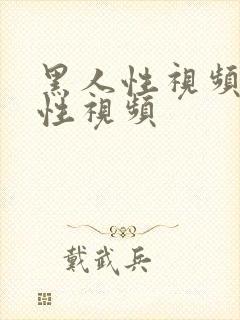 黑人性視頻
性視頻
戴武兵